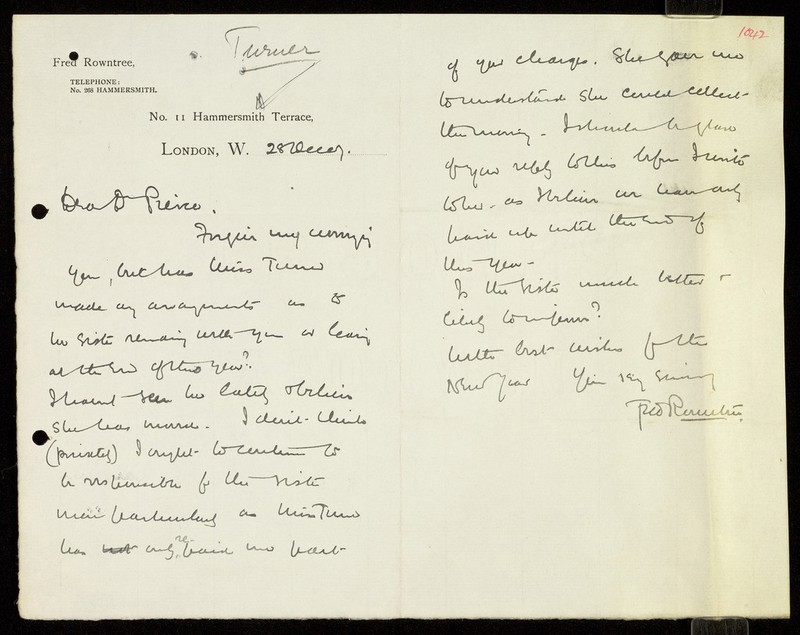 Turner
Fred Rowntree,
TELEPHONE:
No. 268 HAMMERSMITH.
No. 11 Hammersmith Terrace,
LONDON, W. 28 Decr.
Dear Dr Pierce,
Forgive my worrying
you, but has Miss Turner
made any arrangements as to
her sister remaining with you or leaving
at the end of this year?
I havent seen her lately & believe
she has moved. I don't think
(privately) I ought to continue to
be responsible for the sister
more particularly as Miss Turner
has not only re-paid me part
1042
of your charges. She gave me
to understand she could collect
the money. I should be glad
of your reply to this before I write
to her - as I believe we have only
paid up until the end of
this year -
Is the sister much better &
likely to improve?
With best wishes for the
New Year Yours very sincerely
Fred Rowntree.